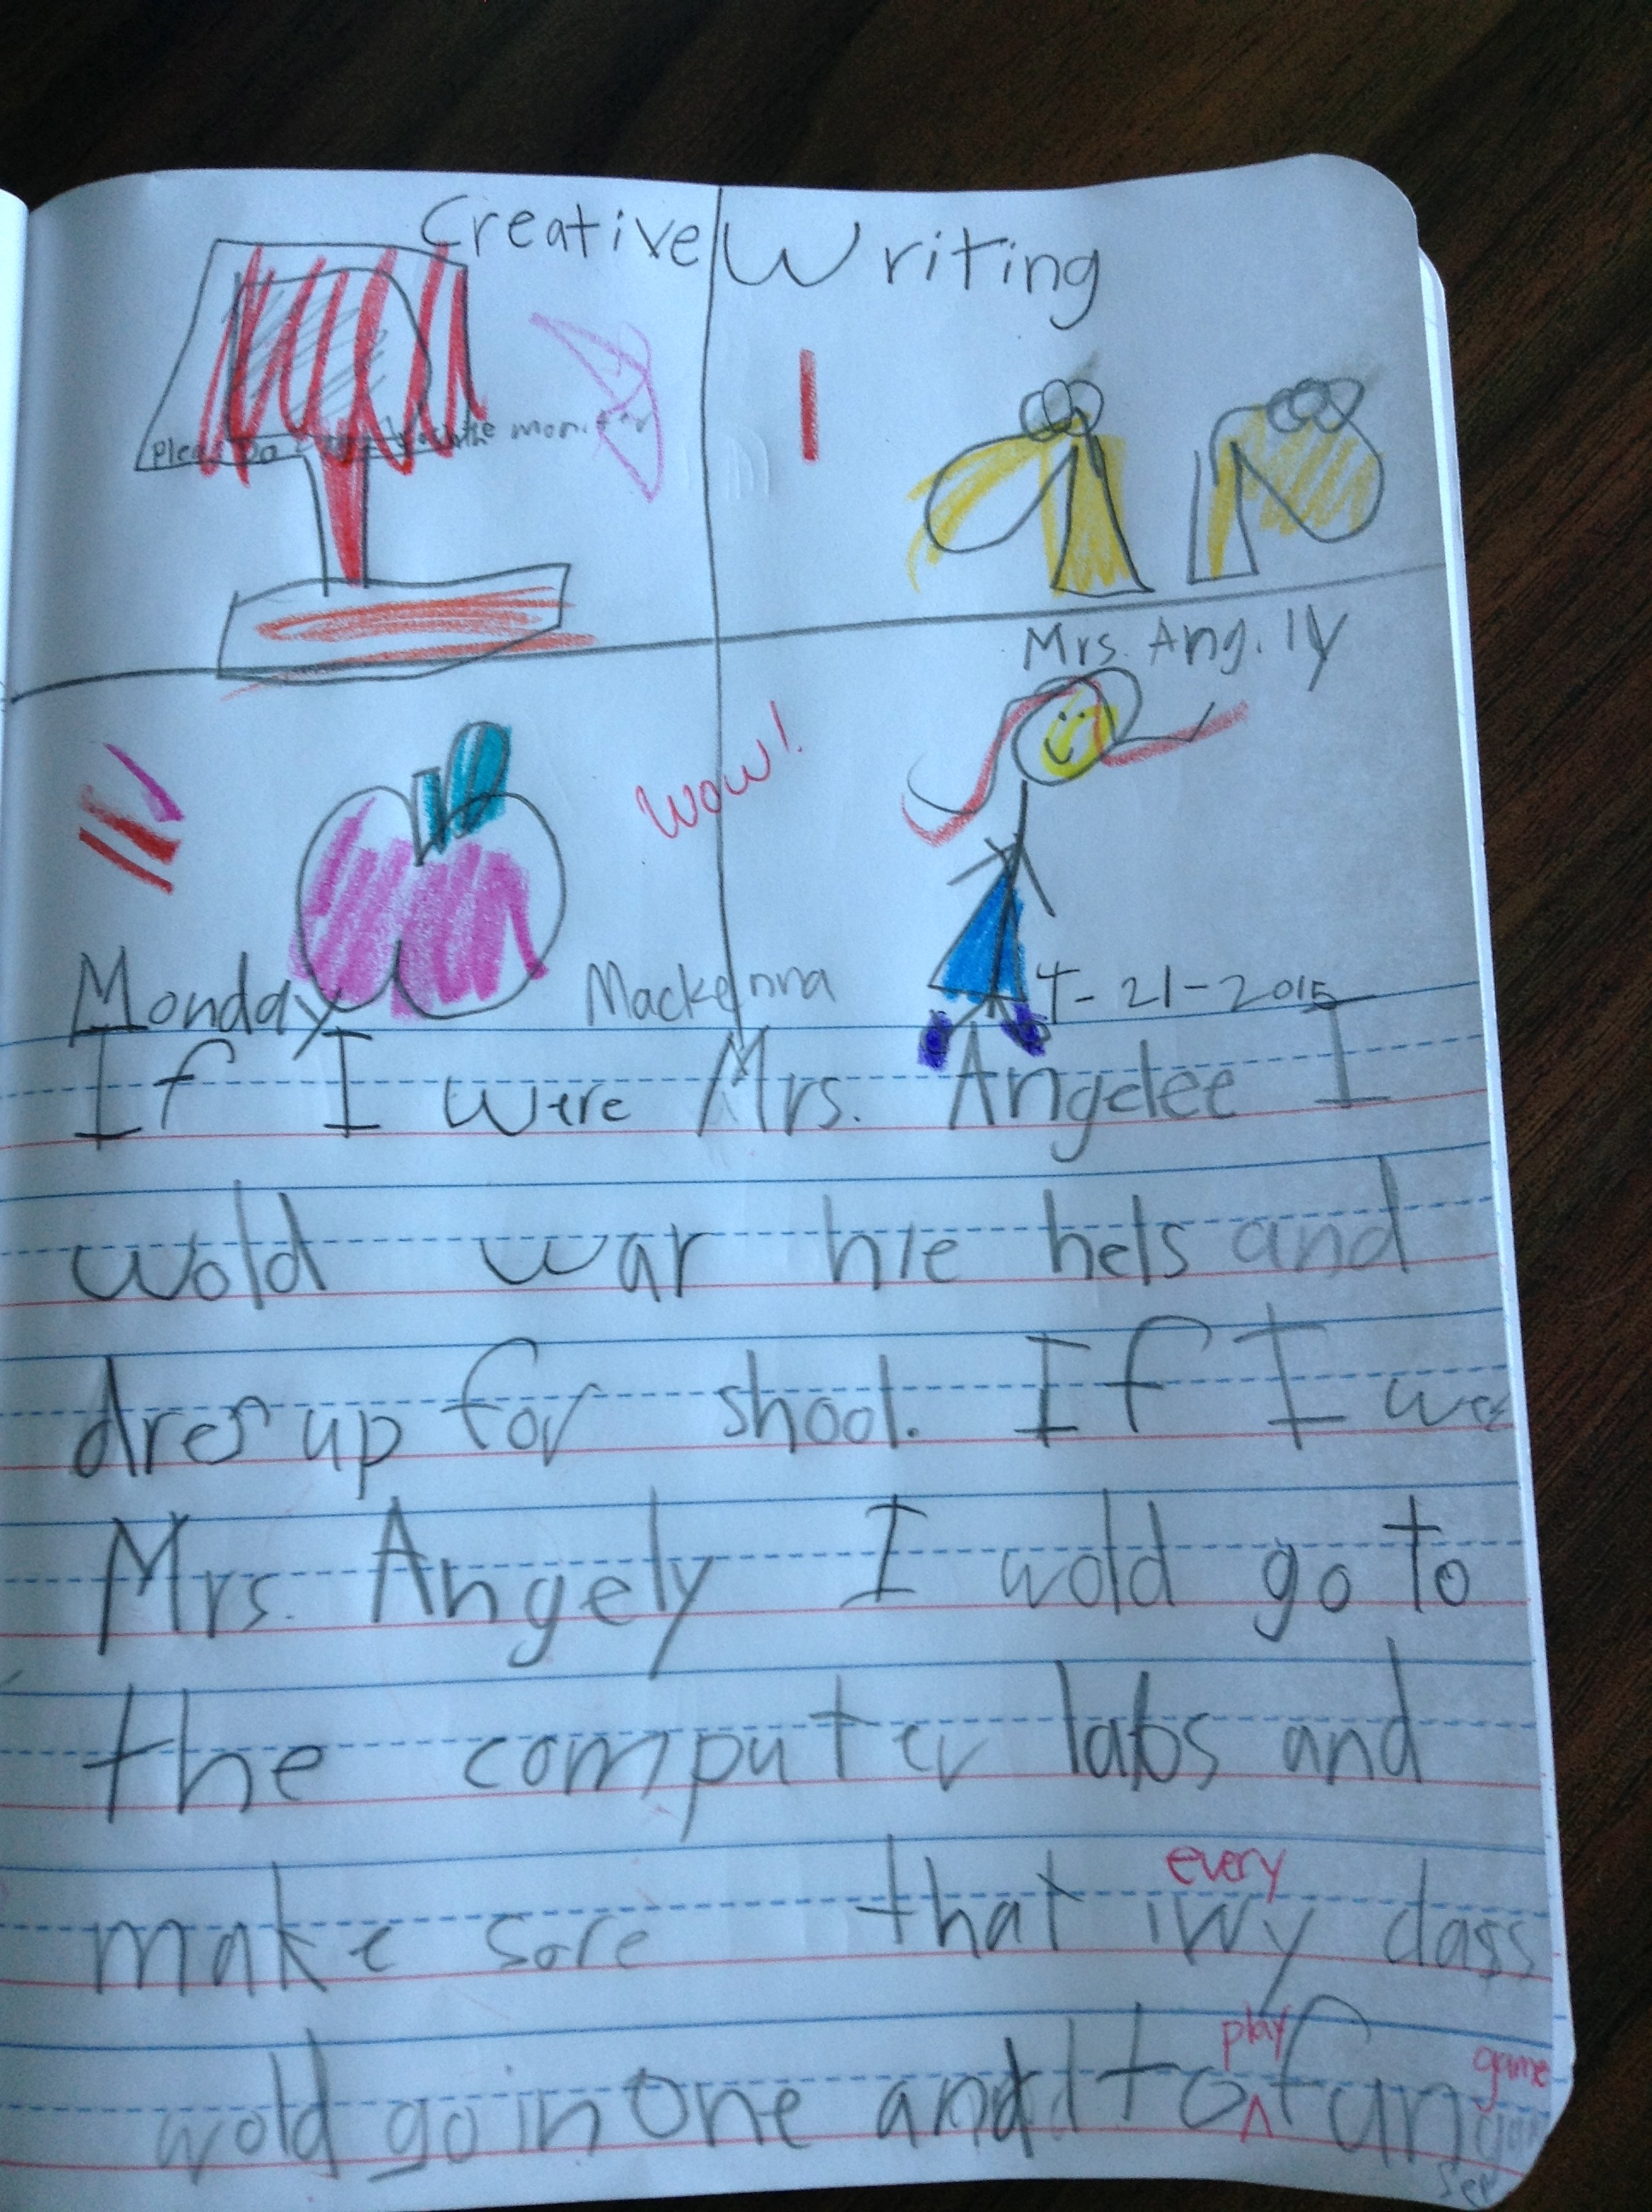 Creative Writing
Please Do the monitor
Mrs. Ang.lly
Wow!
Monday Mackenna 4-21-2015
If I were Mrs. Angelee I
wold war hie hels and
dres up for shool. If I
Mrs. Angely I wold go to
the computer labs and
make sore that iwy class
every
wold go in One and to fun
play game